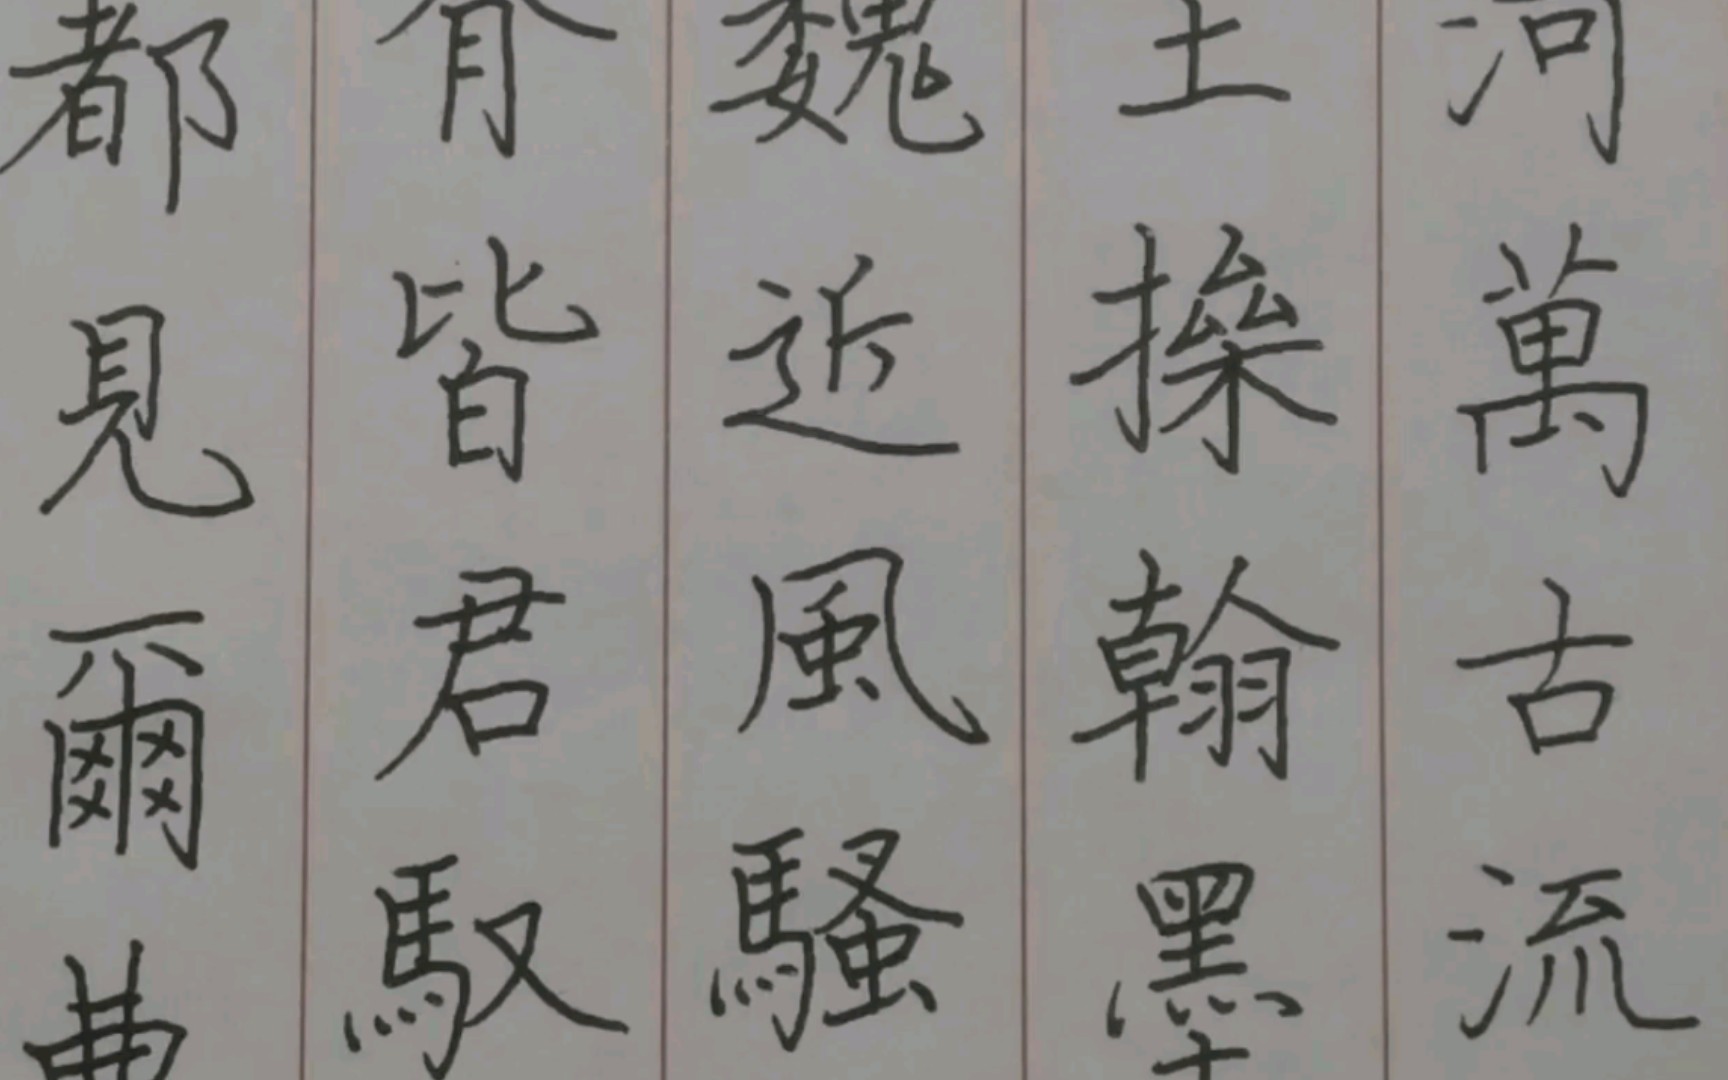 河萬古流
王操翰墨
魏近風騷
脊皆君馭
都見爾曹